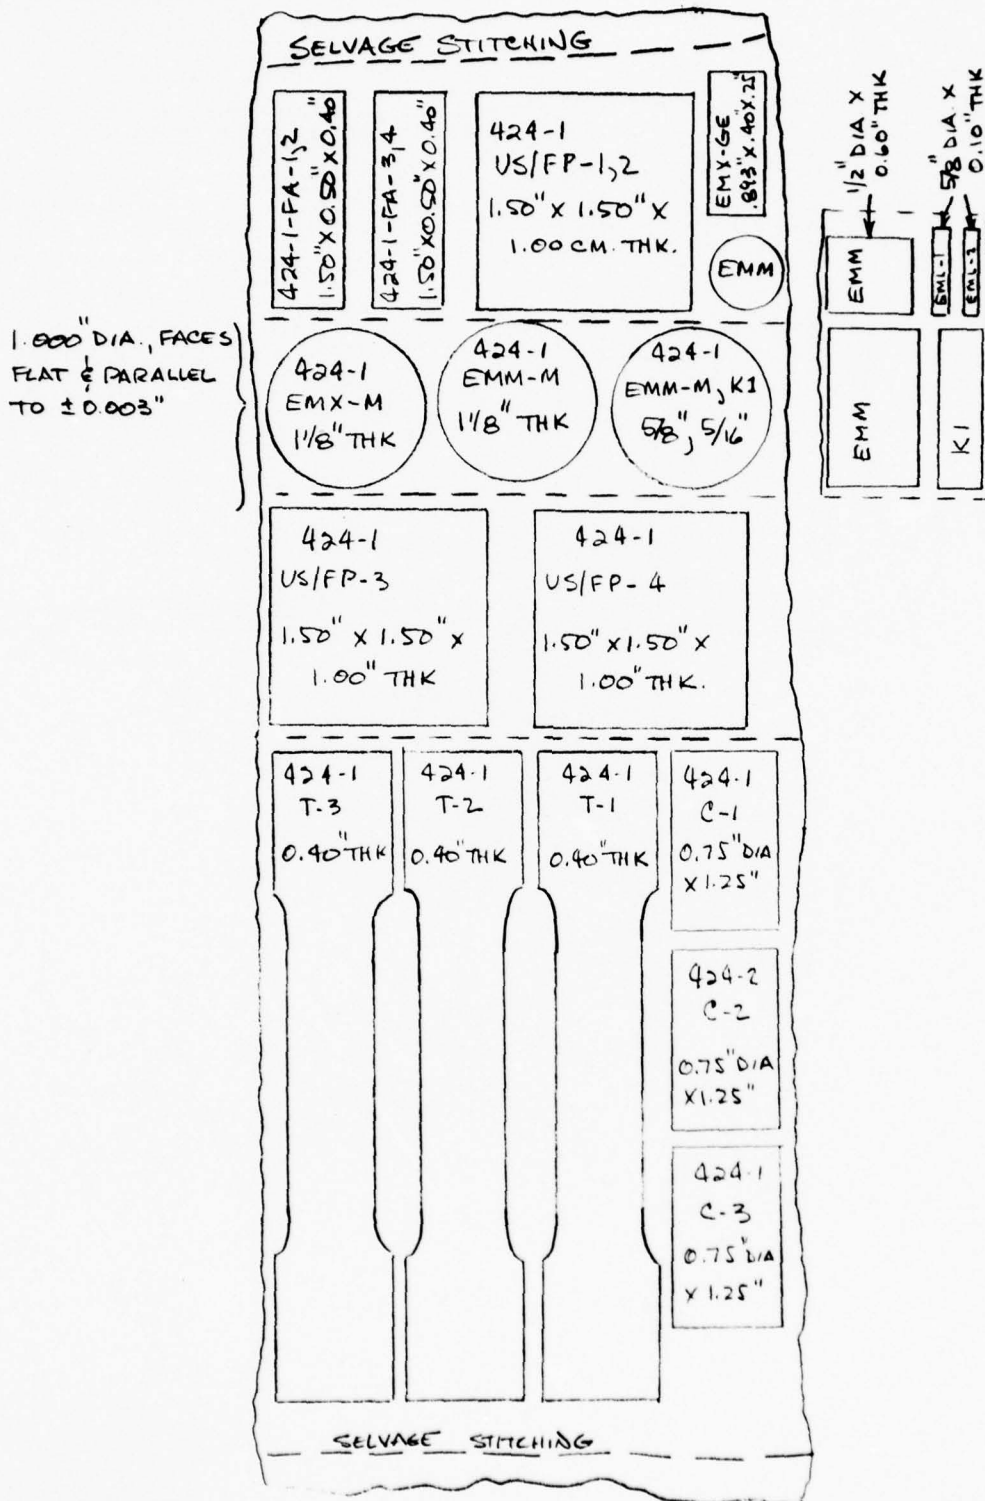 SELVAGE STITCHING
424-1-FA-1,2
1.50" X 0.50" X 0.40"
424-1-FA-3,4
1.50" X 0.50" X 0.40"
424-1
US/FP-1,2
1.50" X 1.50" X
1.00 CM. THK.
EMX-GE
.893" X .40 X .25"
EMM
1/2" DIA X
0.60" THK
5/8" DIA. X
0.10" THK
EMM
EML-1
EML-2
1.000" DIA., FACES
FLAT & PARALLEL
TO ± 0.003"
424-1
EMX-M
1 1/8" THK
424-1
EMM-M
1 1/8" THK
424-1
EMM-M, K1
5/8", 5/16"
EMM
K1
424-1
US/FP-3
1.50" X 1.50" X
1.00" THK
424-1
US/FP-4
1.50" X 1.50" X
1.00" THK.
424-1
T-3
0.40" THK
424-1
T-2
0.40" THK
424-1
T-1
0.40" THK
424-1
C-1
0.75" DIA
X 1.25"
424-2
C-2
0.75" DIA
X 1.25"
424-1
C-3
0.75" DIA
X 1.25"
SELVAGE STITCHING